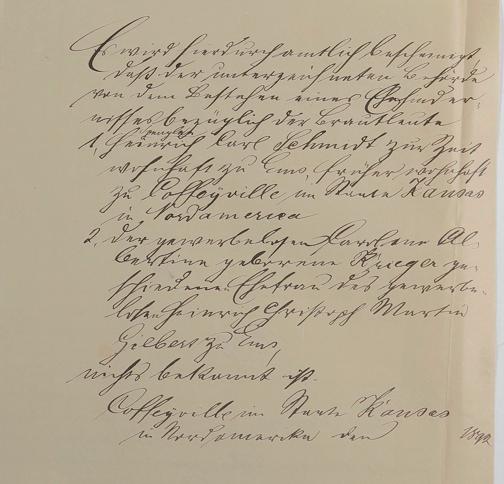 Es wird hierdurch amtlich bescheinigt,
daß der unterzeichneten Behörde
von dem Bestehen eines Ehehinder-
nisses bezüglich der Brautleute
1, Heinrich Carl Schmidt zur Zeit
wohnhaft zu Ems, früher wohnhaft
zu Coffeyville im Staate Kansas
in Nordamerica
2, der gewerbelosen Caroline Al-
bertine geborene Krieger ge-
schiedene Ehefrau des gewerbe-
losen Heinrich Christoph Martin
Gilbert zu Ems,
nichts bekannt ist.
Coffeyville im Staate Kansas
in Nordamerika den 1892